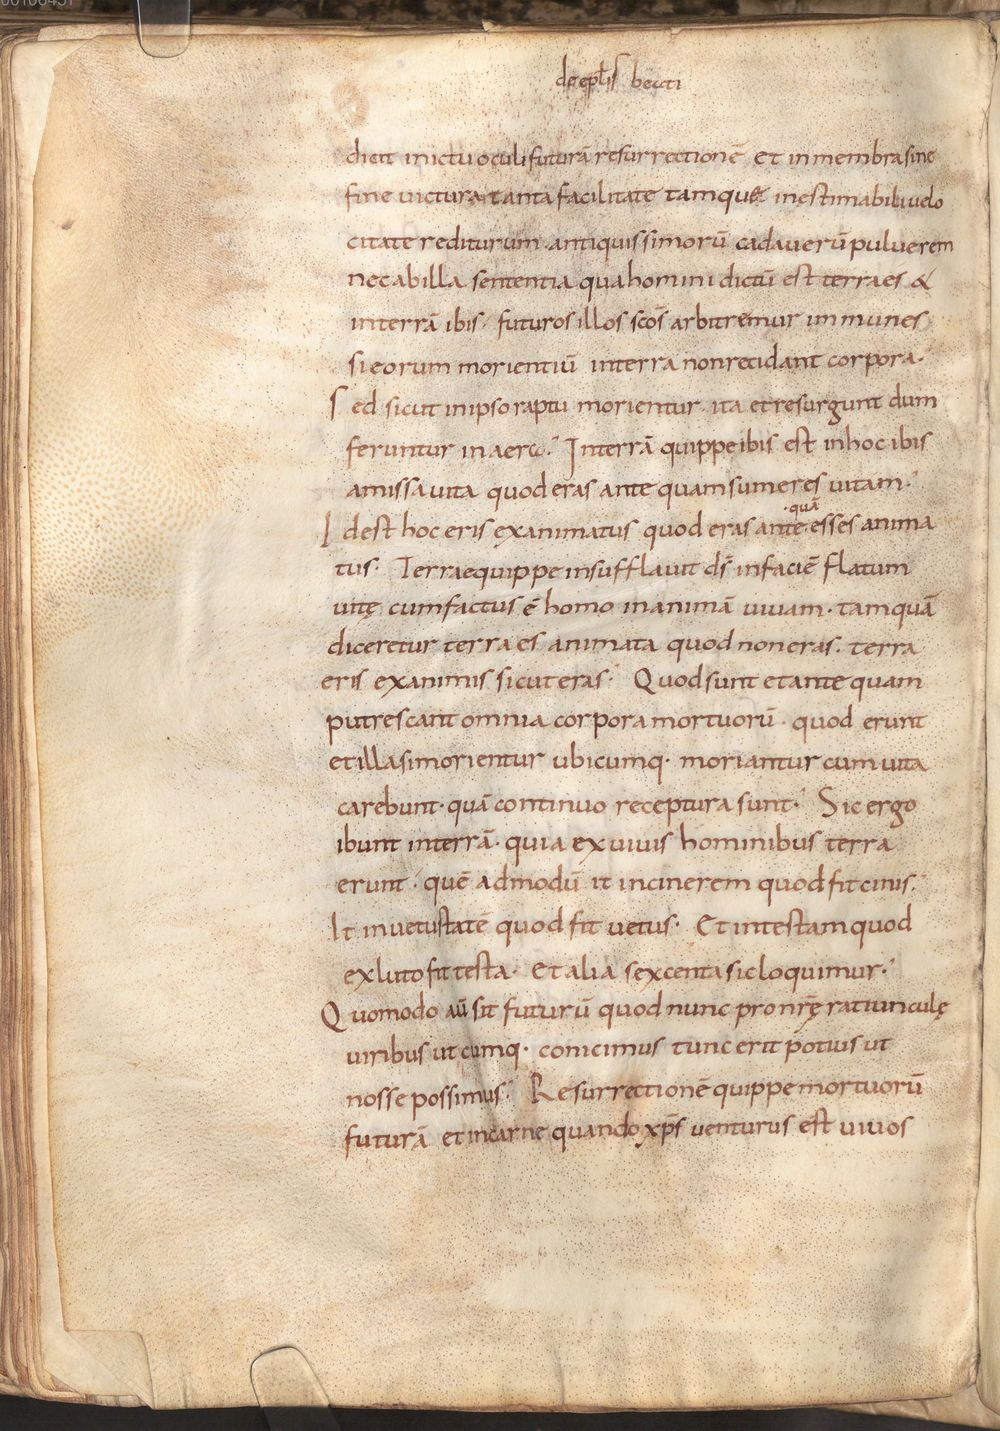 de eptis beati
dicit inictu oculi futurā resurrectionē et in membra sine
fine uictura tanta facilitate tamque inestimabili uelo
citate rediturum antiquissimorū cadauerū puluerem
nec ab illa sententia qua homini dictū est terra es &
in terrā ibis· futuros illos scōs arbitremur immunes
si eorum morientiū in terra non recidant corpora·
Sed sicut in ipso raptu morientur· ita et resurgunt dum
feruntur in aere·' In terrā quippe ibis est in hoc ibis
amissa uita quod eras ante quam sumeres uitam·'
·quā
Id est hoc eris exanimatus quod eras ante· esses anima
tus· Terrae quippe insufflauit ds̄ in faciē flatum
uitę cum factus ē homo in animā uiuam· tamquā
diceretur terra es animata quod non eras· terra
eris exanimis sicut eras·' Quod sunt et ante quam
putrescant omnia corpora mortuorū· quod erunt
et illa si morientur ubicumq· moriantur cum uita
carebunt· quā continuo receptura sunt·' Sic ergo
ibunt in terrā· quia ex uiuis hominibus terra
erunt· quē admodū it in cinerem quod fit cinis·'
It in uetustatē quod fit uetus· Et in testam quod
ex luto fit testa· Et alia sexcenta sic loquimur·'
Quomodo aū sit futurū quod nunc pro nrę̄ ratiunculę
uiribus utcumq· conicimus tunc erit potius ut
nosse possimus·' Resurrectionē quippe mortuorū
futurā et in carne quando xp̄s uenturus est uiuos